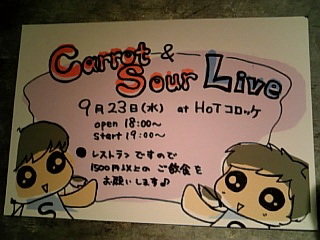 Carrot &
Sour Live
9月23日(水) at HOTコロッケ
open 18:00〜
start 19:00〜
●レストランですので
1500円以上のご飲食を
お願いします♪
S
S